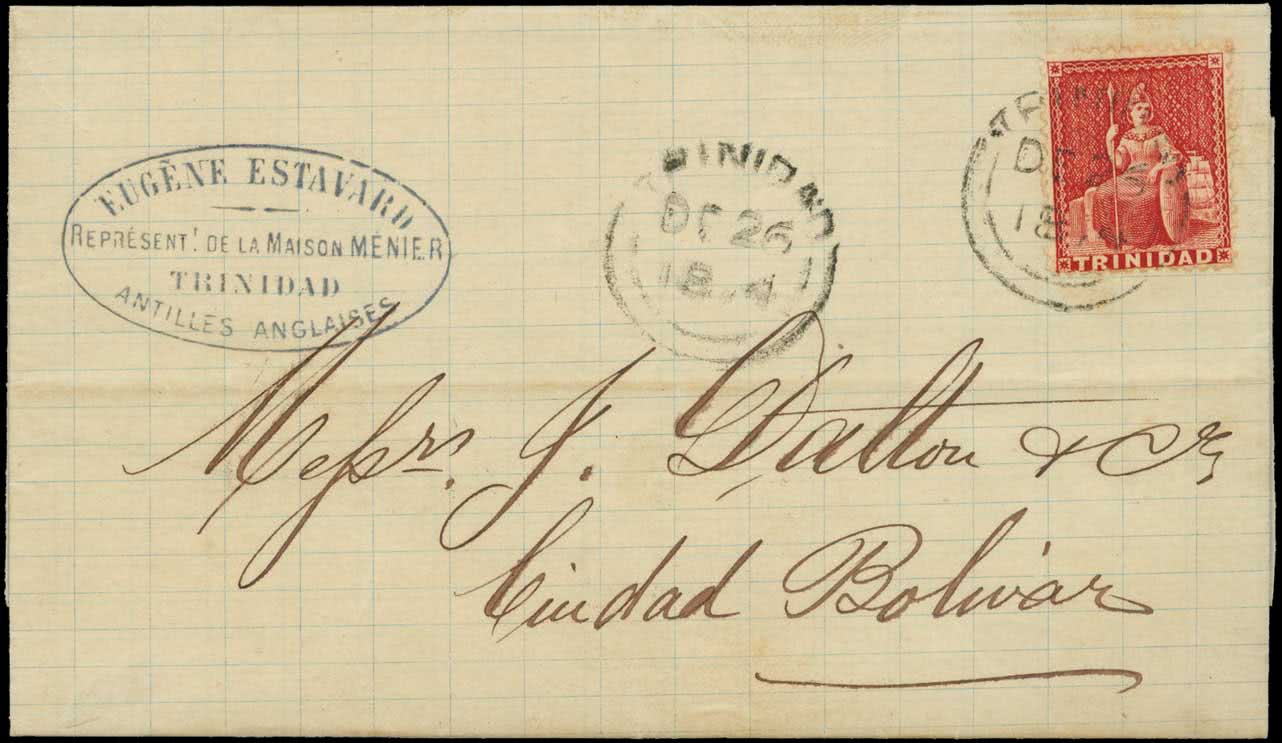 EUGÈNE ESTAVARD
REPRÉSENT.T DE LA MAISON MÉNIER
TRINIDAD
ANTILLES ANGLAISES
TRINIDAD
DE 26
TRINIDAD
Messrs. J. Dalton & Co
Ciudad Bolívar